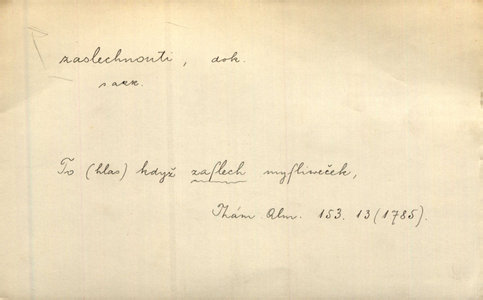 zaslechnouti, dok.
s akk.
To (hlas) když zaſlech myſliweček,
Thám. Alm. 153. 13 (1785).